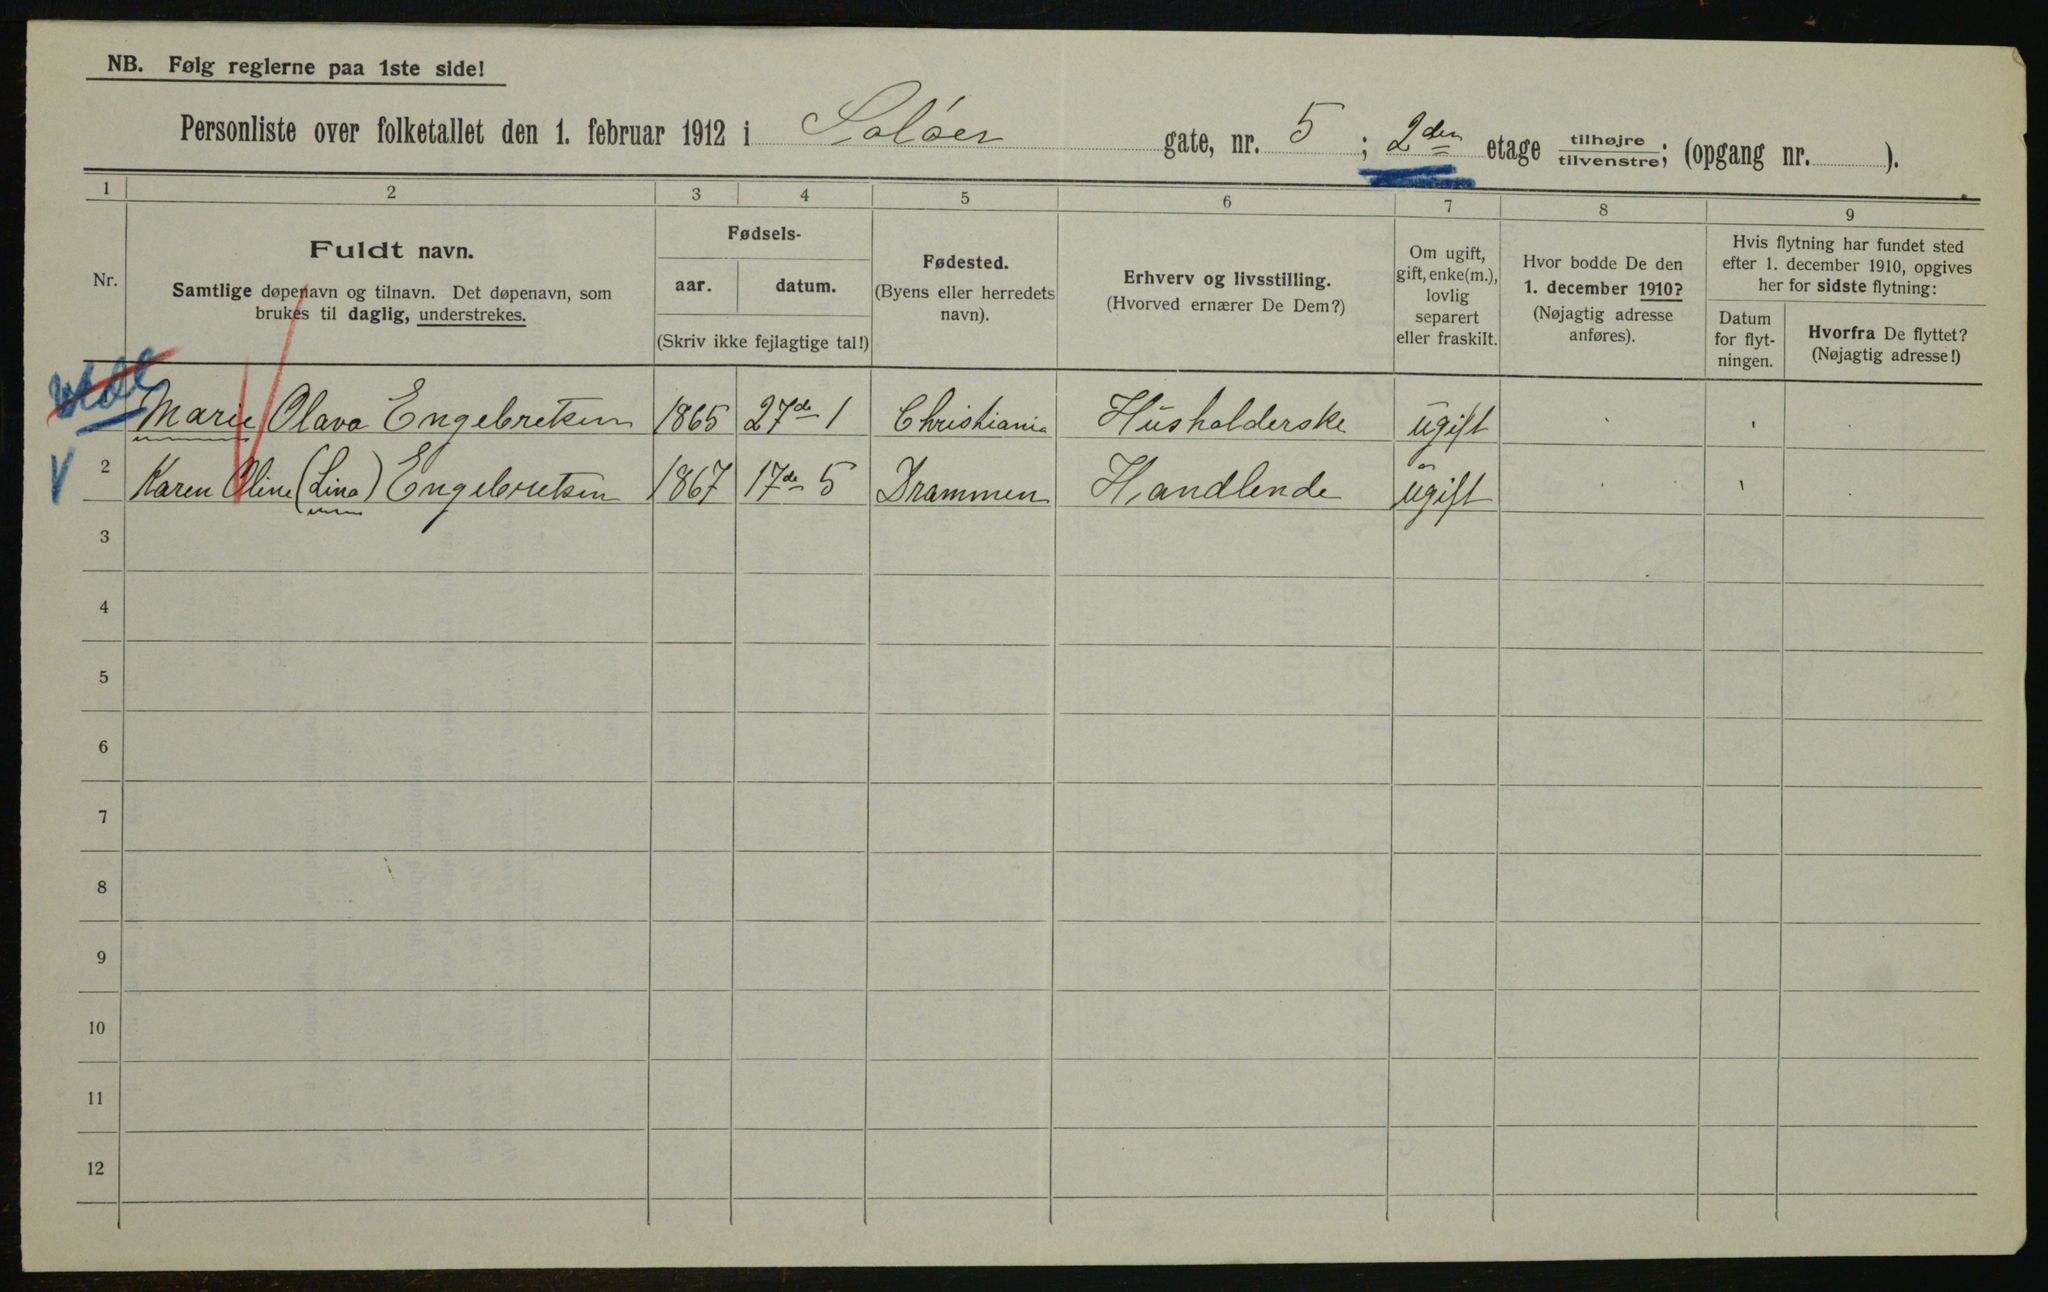 NB. Følg reglerne paa 1ste side!
Personliste over folketallet den 1. februar 1912 i Soløer gate, nr. 5 ; 2den etage tilhøjre/tilvenstre; (opgang nr. ).
1 2 3 4 5 6 7 8 9
Nr.
Fuldt navn.
Samtlige døpenavn og tilnavn. Det døpenavn, som
brukes til daglig, understrekes.
Fødsels-
aar. datum.
(Skriv ikke fejlagtige tal!)
Fødested.
(Byens eller herredets
navn).
Erhverv og livsstilling.
(Hvorved ernærer De Dem?)
Om ugift,
gift, enke(m.),
lovlig
separert
eller fraskilt.
Hvor bodde De den
1. december 1910?
(Nøjagtig adresse
anføres).
Hvis flytning har fundet sted
efter 1. december 1910, opgives
her for sidste flytning:
Datum
for flyt-
ningen.
Hvorfra De flyttet?
(Nøjagtig adresse!)
Marie Olava Engebretsen 1865 27de 1 Christiania Husholderske ugift
2 Karen Oline (Lina) Engebretsen 1867 17de 5 Drammen Handlende ugift
3
4
5
6
7
8
9
10
11
12